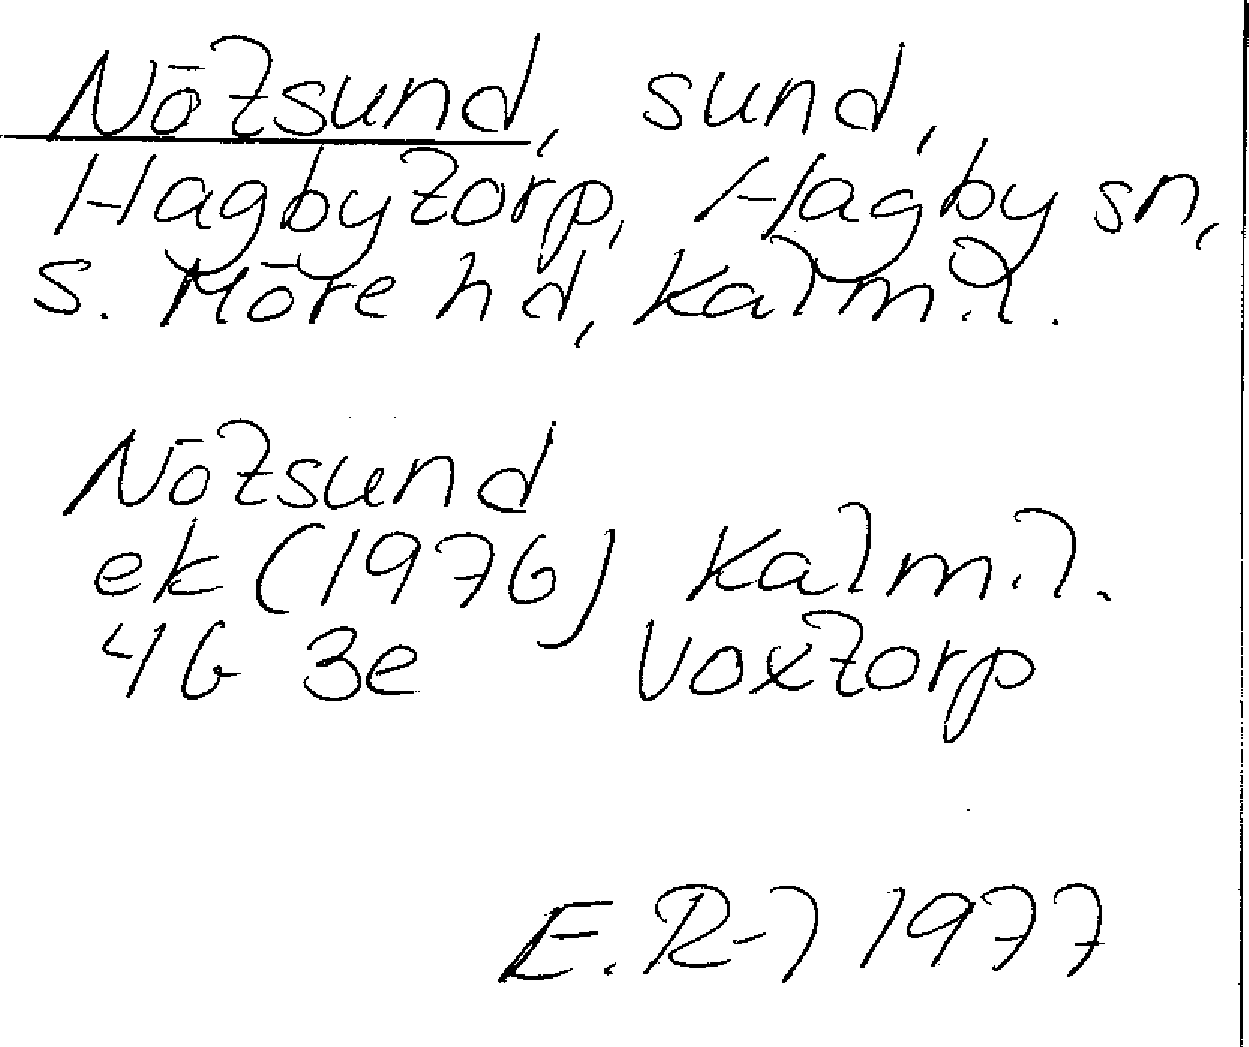 Nötsund, sund,
Hagbytorp, Hagby sn,
S. Möre hd, Kalm. l.
Nötsund
ek (1976) Kalm. l.
4G 3e Voxtorp
E. R-l 1977